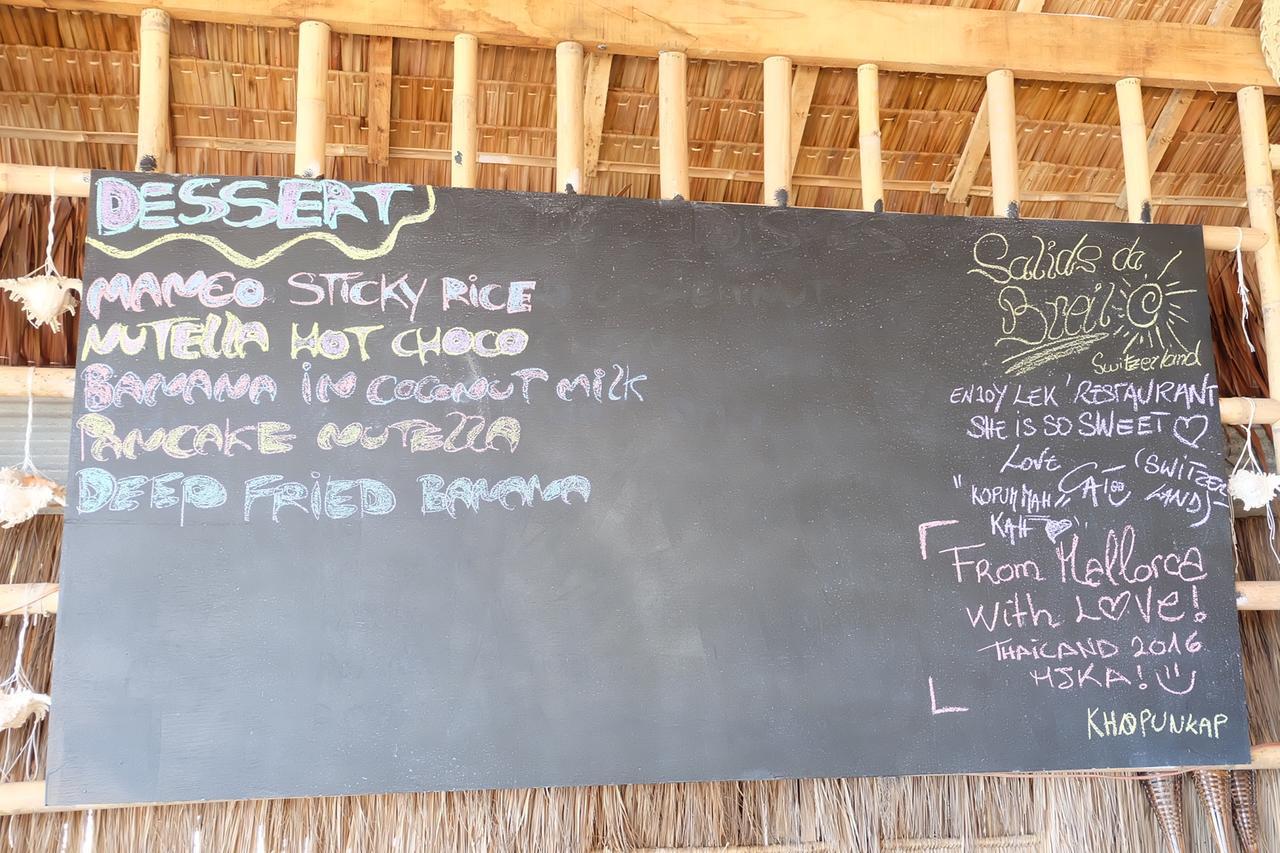 DESSERT
MANGO STICKY RICE
NUTELLA HOT CHOCO
BANANA IN COCONUT MILK
PANCAKE NUTELLA
DEEP FRIED BANANA
Salide da
Breil
Switzerland
ENJOY LEK' RESTAURANT
SHE IS SO SWEET ♡
LOVE
"KOPUNMAH"
KAH
From Mallorca
With LOVE!
THAILAND 2016
MJKA!
KHOPUNKAP